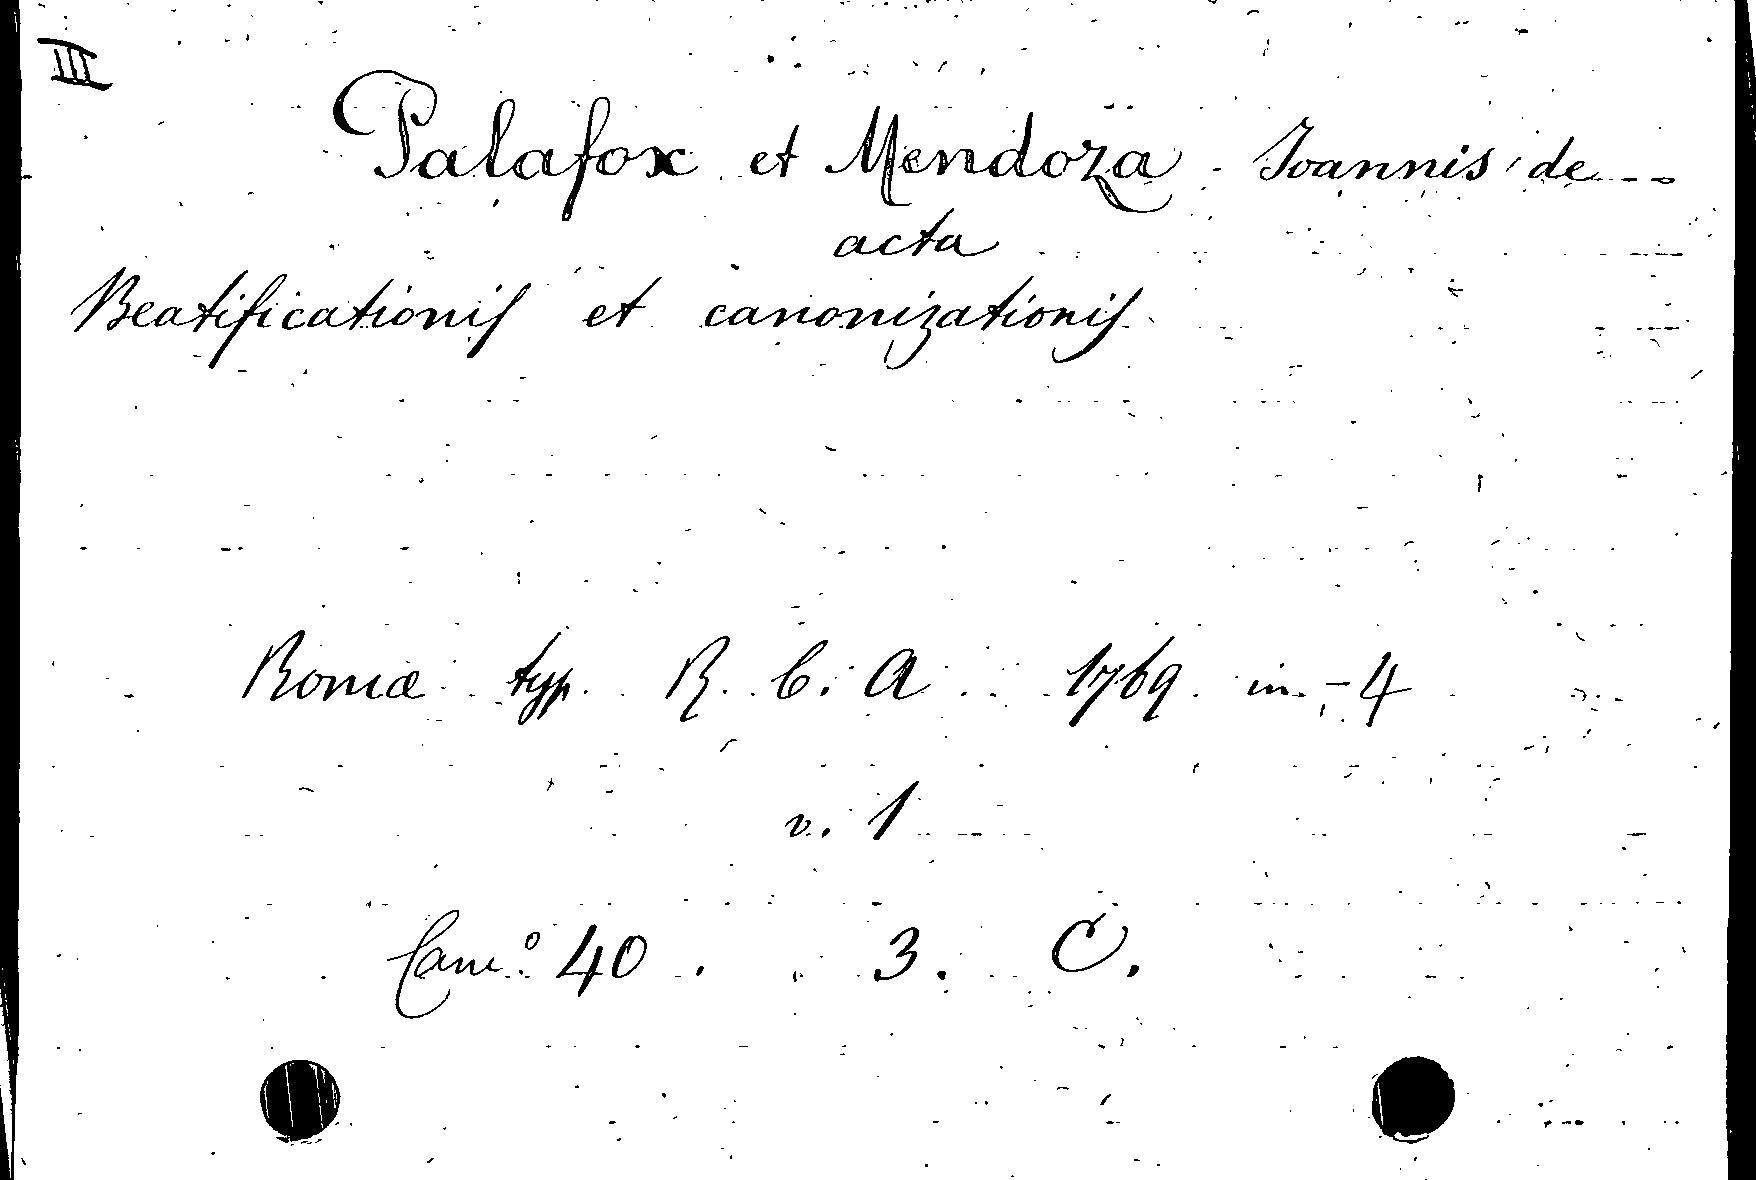 III
Palafox et Mendoza Joannis de --
acta
Beatificationis et canonizationis
Romæ typ. R. C. A 1769 in-4
v. 1
Cam.º 40. 3. C.